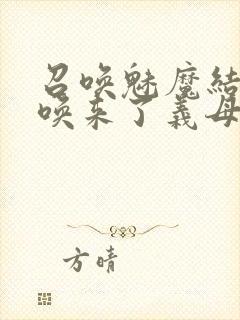 召唤魅魔結
唤来了義母
方晴